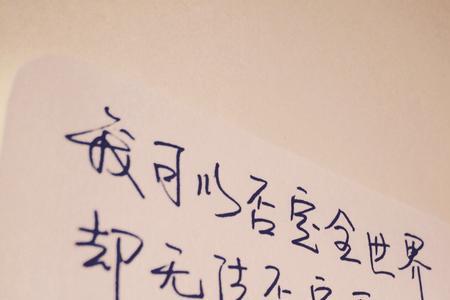 我可以否定全世界
却无法否定